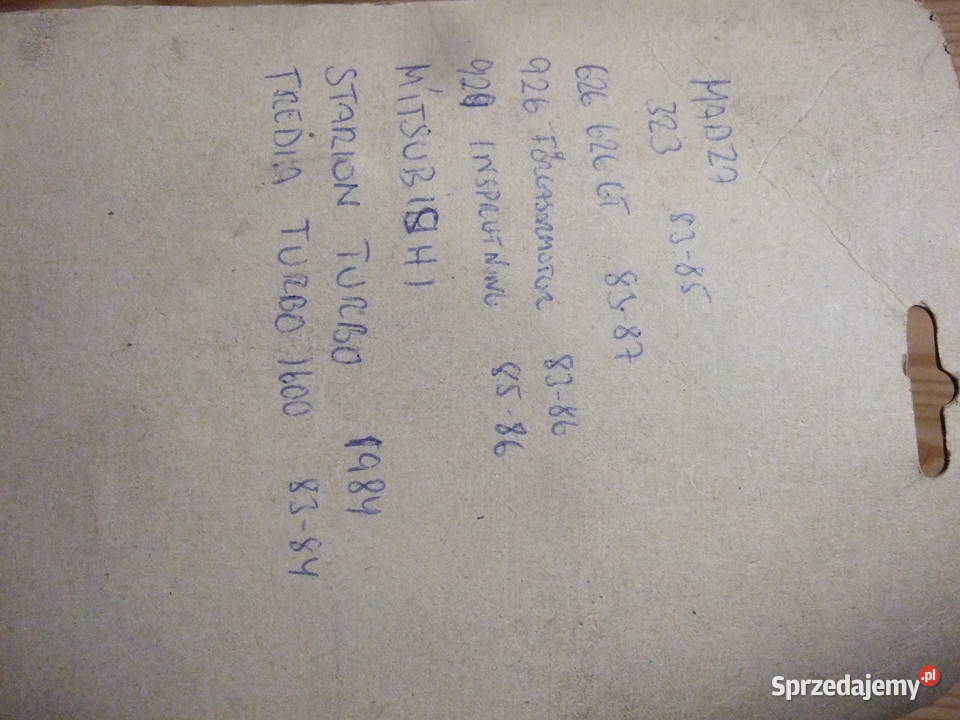 MADZA
323 83-85
626 626 GT 83-87
926 FÖRGASARMOTOR 83-86
929 INSPRUTNING 85-86
MITSUBISHI
STARION TURBO 1984
TREDIA TURBO 1600 83-84
Sprzedajemy.pl